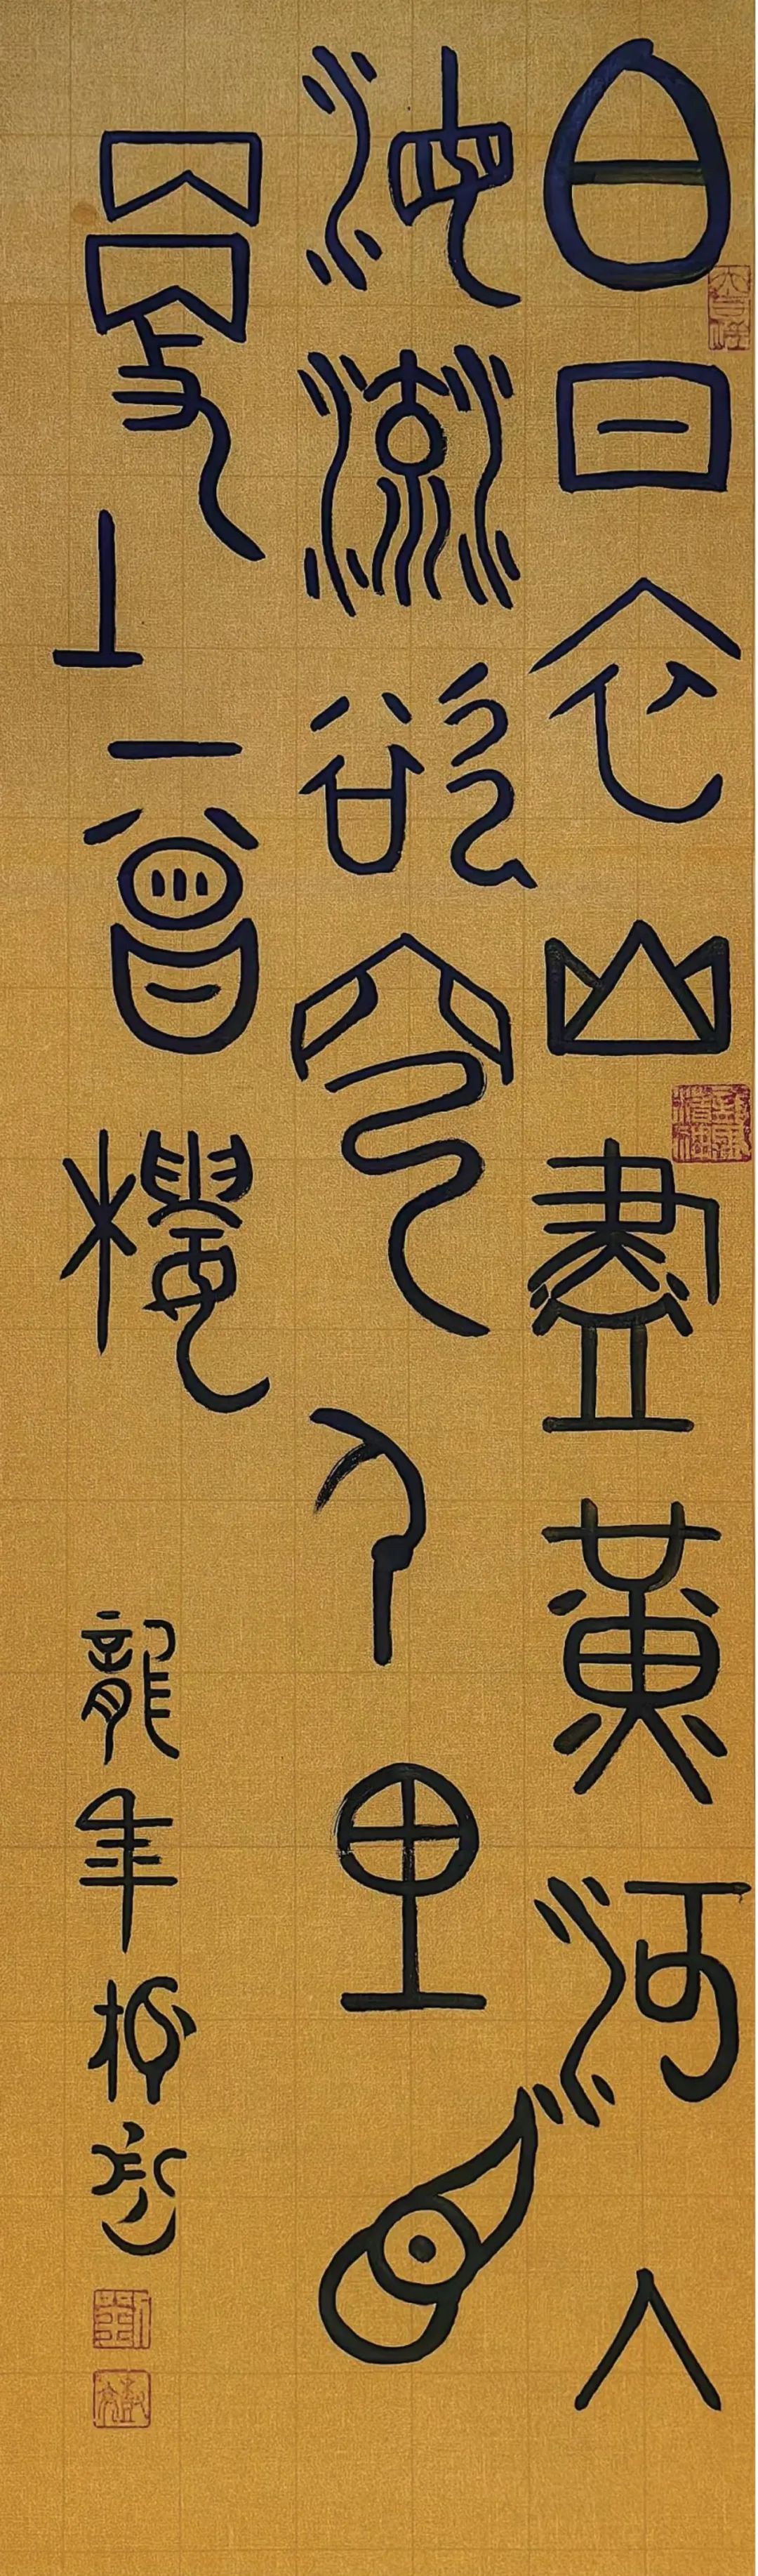 白日依山盡黃河入
海流欲窮千里目
更上一層樓
龍年